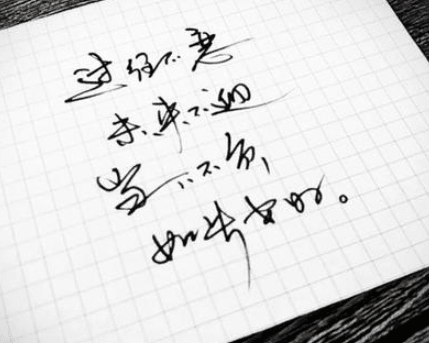 过往不恋
未来不迎
当下不负，
如此安好。